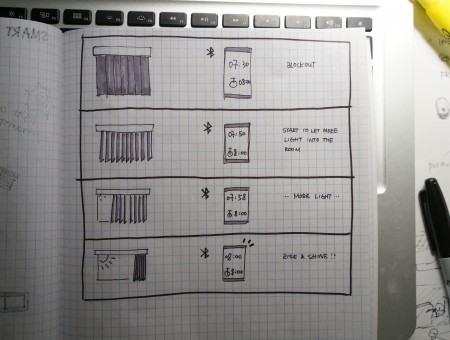 SMART
07:30
08:00
BLOCKOUT
07:50
8:00
START TO LET MORE
LIGHT INTO THE
ROOM
07:58
8:00
... MORE LIGHT ...
08:00
8:00
RISE & SHINE !!